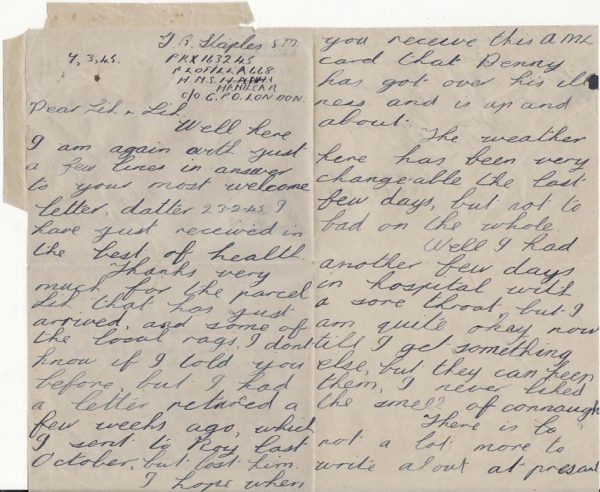 T R. Staples S.M.
7,3,45. P KX 163245
FLOTILLA 668
H.M.S.
HAMILCAR
C/O G.P.O. LONDON.
Dear Lih & Sid.
Well here
I am again with just
a few lines in answer
to your most welcome
letter, datter 23-2-45 I
have just received in
the best of health
Thanks very
much for the parcel
Lih that has just
arrived, and some of
the local rags, I dont
know if I told you
before, but I had
a letter retured a
few weeks ago, which
I sent to Roy last
October, but lost him.
I hope when
you receive this AML
card that Benny
has got over his ill
ness and is up and
about.
The weather
here has been very
changeable the last
few days, but not to
bad on the whole.
Well I had
another few days
in hospital with
a sore throat, but I
am quite okay now
till I get something
else, but they can keep
them, I never liked
the smell of
There is to
not a lot more to
write about at present